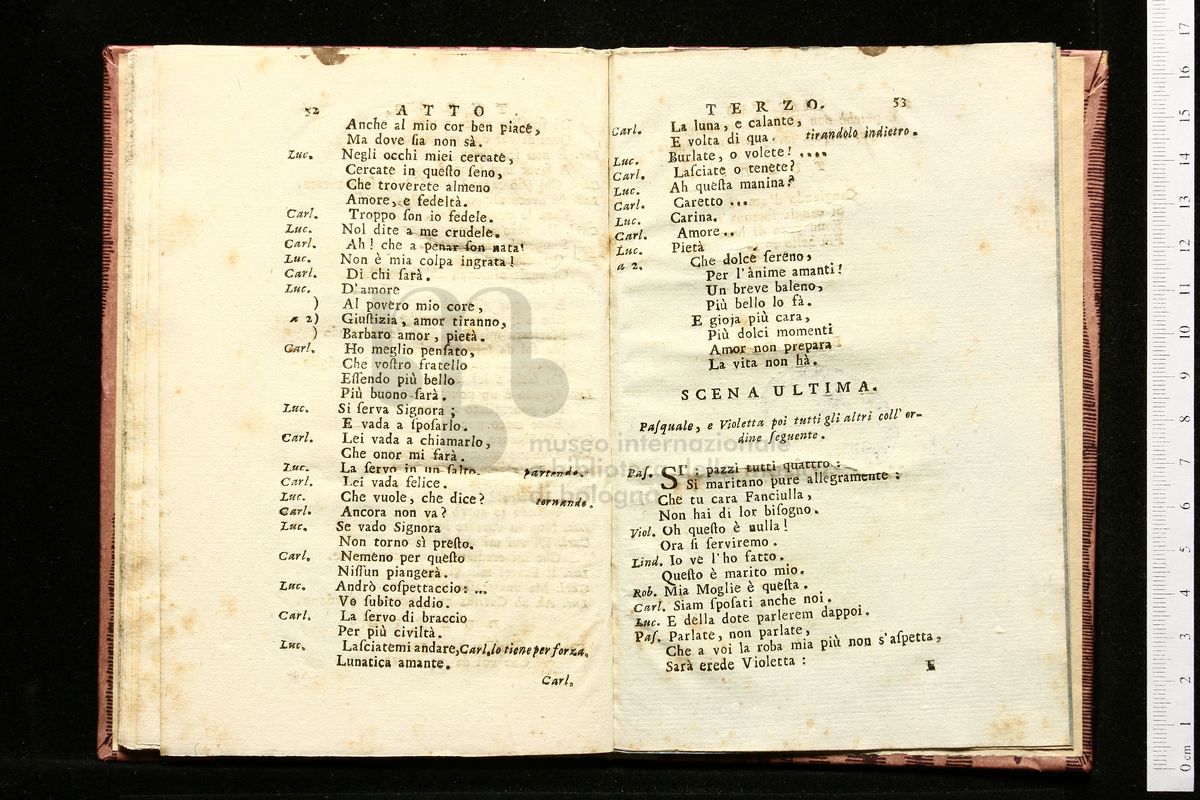 52 ATTO
Anche al mio cor ben piace,
Ma dove ſia non sà.
Luc. Negli occhi miei cercate,
Cercate in queſto ſeno,
Che troverete almeno
Amore, e fedeltà.
Carl. Troppo ſon io fedele.
Luc. Nol dite a me crudele.
Carl. Ah! che a penar ſon nata!
Luc. Non è mia colpa ingrata!
Carl. Di chi ſarà.
Luc. D'amore
) Al povero mio core,
a 2) Giuſtizia, amor tiranno,
) Barbaro amor, pietà.
Carl. Ho meglio penſato,
Che voſtro fratello
Eſſendo più bello
Più buono ſarà.
Luc. Si ſerva Signora;
E vada a ſpoſarlo.
Carl. Lei vada a chiamarlo,
Che onor mi farà.
Luc. La ſervo in un ſalto. partendo.
Carl. Lei vada felice.
Luc. Che vuole, che dice? tornando.
Carl. Ancora non va?
Luc. Se vado Signora
Non torno sì preſto.
Carl. Nemeno per queſto
Niſſun piangerà.
Luc. Andrò coſpettaccio: ...
Vo ſubito addio.
Carl. La ſervo di braccio
Per più civiltà.
Luc. Laſciatemi andare, Carl. lo tiene per forza.
Lunatica amante.
Carl.
TERZO. 53
Carl. La luna, e calante,
E volta di qua. tirandolo indietro.
Luc. Burlate, o volete! ....
Carl. Laſciate o tenete?
Luc. Ah queſta manina?
Carl. Caretto ...
Luc. Carina.
Carl. Amore..
Luc. Pietà
a 2. Che dolce ſereno,
Per l'ànime amanti!
Un breve baleno,
Più bello lo fà.
E gioja più cara,
Più dolci momenti
Amor non prepara
La vita non hà.
SCENA ULTIMA.
Paſquale, e Violetta poi tutti gli altri coll' or-
dine ſeguente.
Paſ. SI' pazzi tutti quattro:
Si maritano pure allegramente:
Che tu cara Fanciulla,
Non hai di lor biſogno.
Viol. Oh queſto è nulla!
Ora ſi ſerviremo.
Lind. Io ve l'ho fatto.
Queſto è marito mio.
Rob. Mia Moglie è queſta.
Carl. Siam ſpoſati anche noi.
Luc. E della dote parlerem dappoi.
Paſ. Parlate, non parlate,
Che a voi la roba mia più non s'aſpetta,
Sarà erede Violetta:
E
museo internazionale
e biblioteca della musica
di bologna
0 cm 1 2 3 4 5 6 7 8 9 10 11 12 13 14 15 16 17